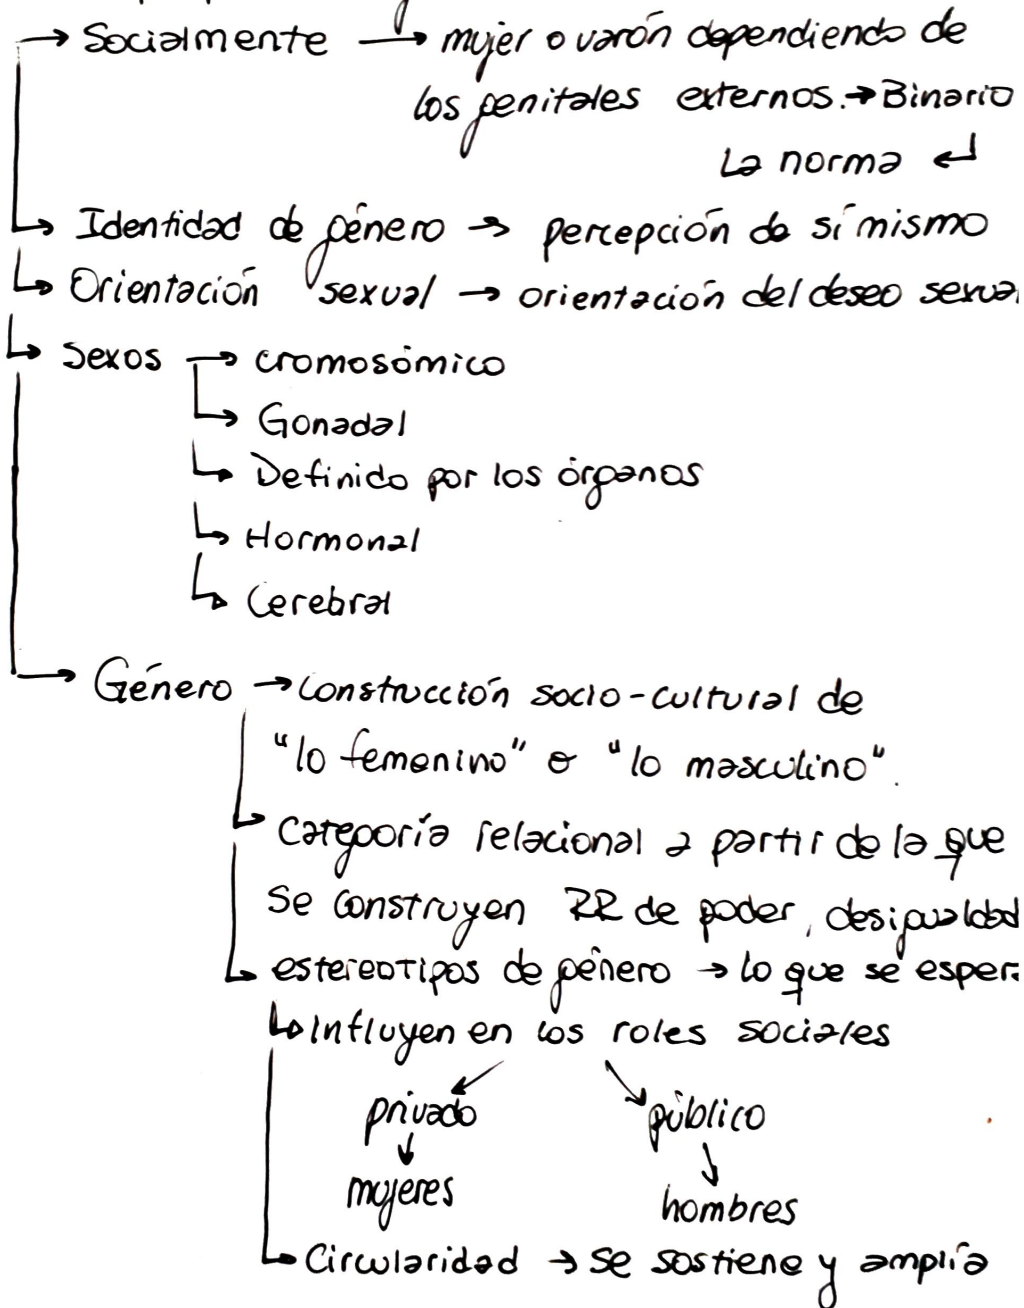 → Socialmente → mujer o varón dependiendo de
los genitales externos. → Binario
La norma ↵
↳ Identidad de género → percepción de sí mismo
↳ Orientación sexual → orientación del deseo sexual
↳ Sexos → cromosómico
↳ Gonadal
↳ Definido por los órganos
↳ Hormonal
↳ Cerebral
→ Género → Construcción socio-cultural de
"lo femenino" o "lo masculino".
↳ Categoría relacional a partir de la que
se construyen RR de poder, desigualdad
↳ estereotipos de género → lo que se esper
↳ Influyen en los roles sociales
↙ ↘
privado público
↓ ↓
mujeres hombres
↳ Circularidad → se sostiene y amplía